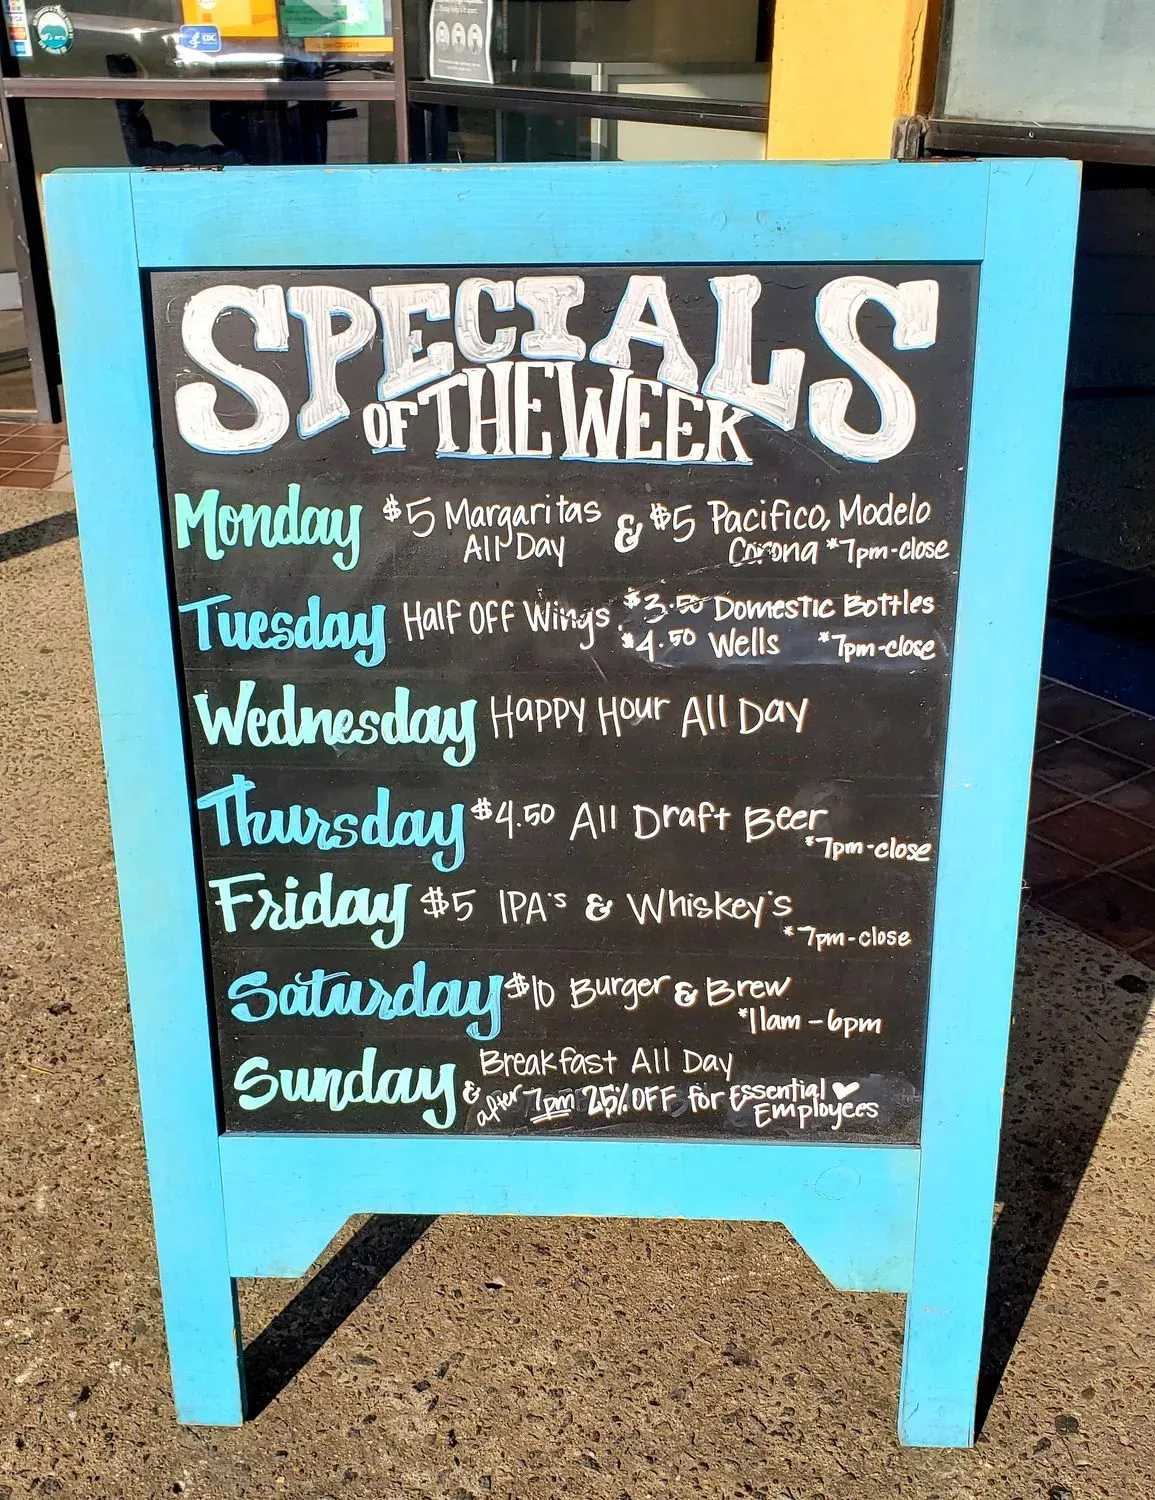 CDC
SPECIALS
OF THE WEEK
Monday $5 Margaritas & $5 Pacifico, Modelo
All Day Corona *7pm-close
Tuesday Half OFF Wings $3.50 Domestic Bottles
$4.50 Wells *7pm-close
Wednesday Happy Hour All Day
Thursday $4.50 All Draft Beer
*7pm-close
Friday $5 IPA's & Whiskey's
*7pm-close
Saturday $10 Burger & Brew
*11am-6pm
Sunday Breakfast All Day
& after 7pm 25% OFF for Essential
Employees